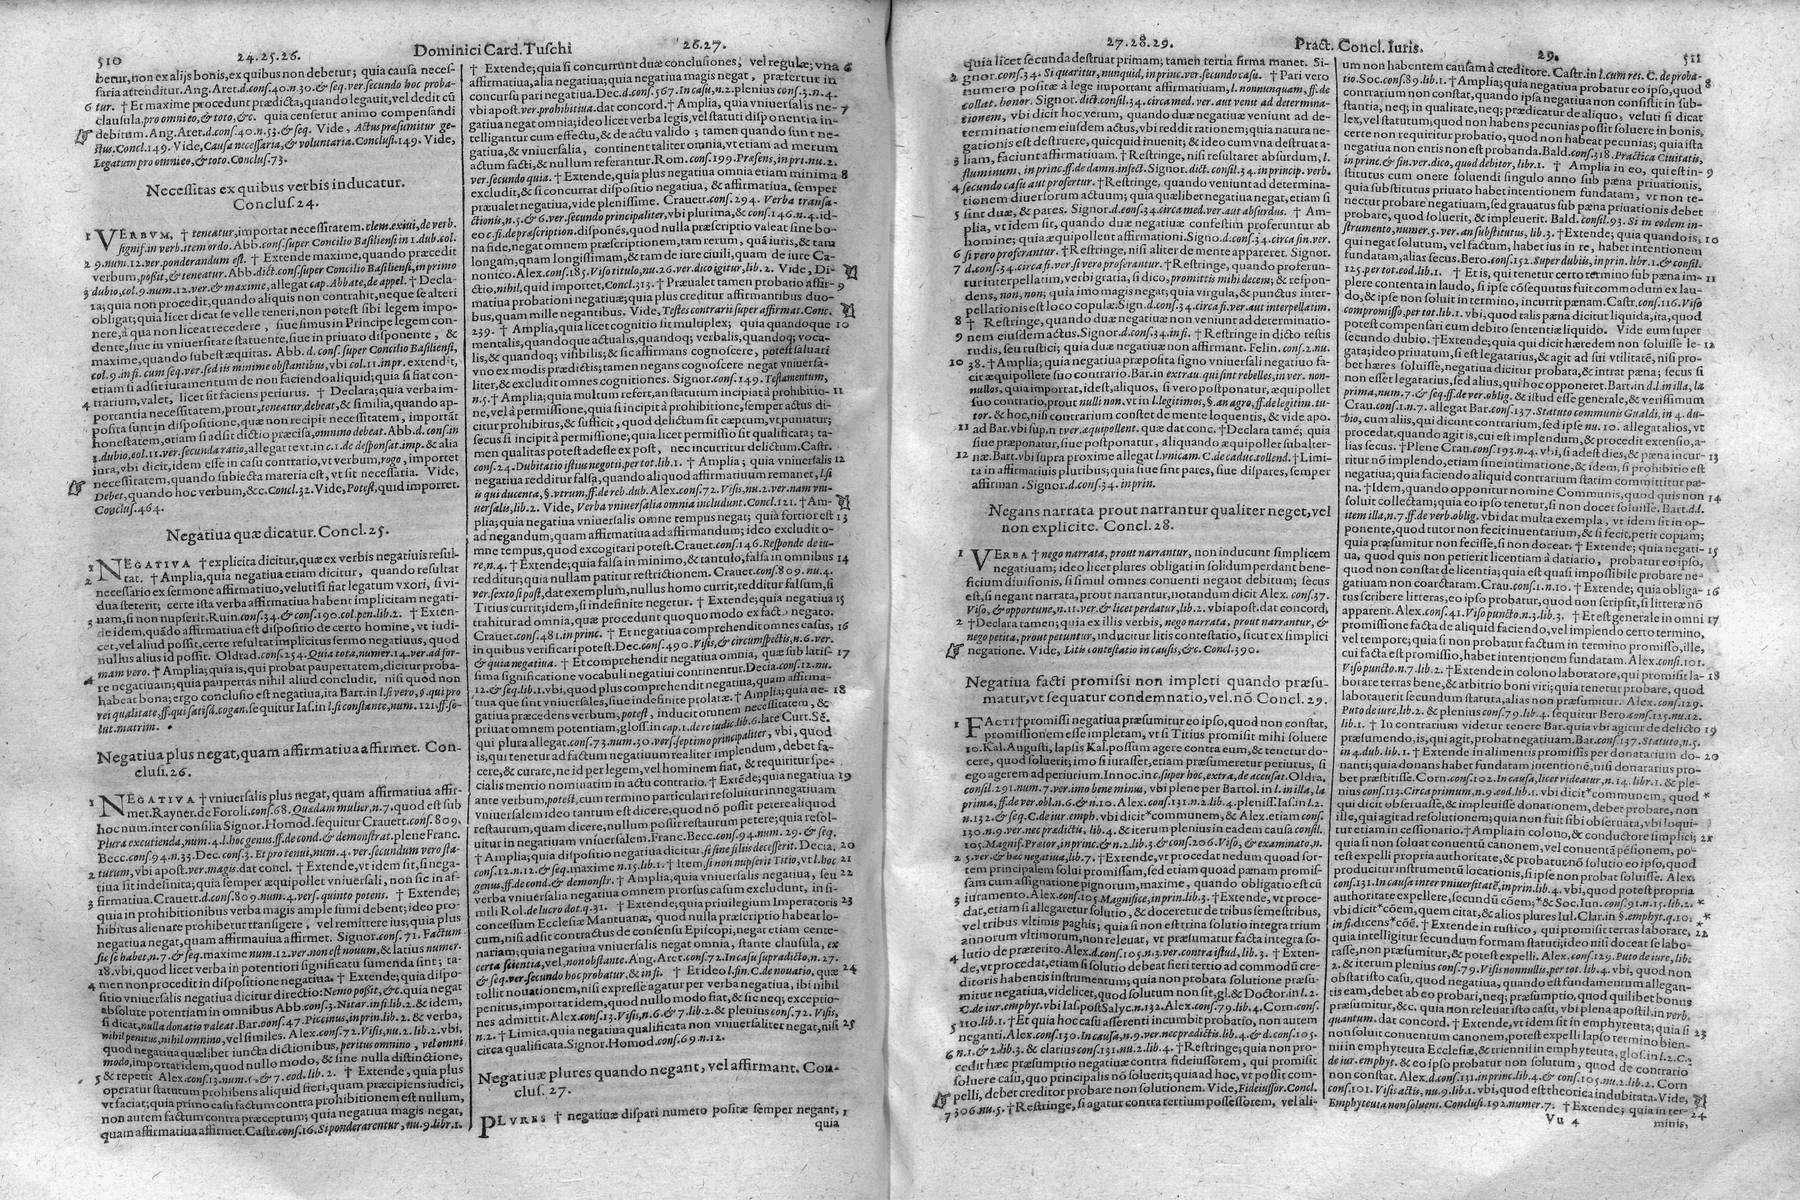 510 24.25.26. Dominici Card. Tuschi 26.27.
betur, non ex alijs bonis, ex quibus non debetur; quia causa neces-
saria attenditur. Ang. Aret. d. cons. 40. n. 30. & seq. ver. secundo hoc proba-
6 tur. † Et maxime procedunt prædicta, quando legauit, vel dedit cũ
clausula, pro omni eo, & toto, &c. quia censetur animo compensandi
debitum. Ang. Aret. d. cons. 40. n. 53. & seq. Vide, Actus præsumitur ge-
stus. Concl. 149. Vide, Causa necessaria, & voluntaria. Conclus. 149. Vide,
Legatum pro omni eo, & toto. Conclus. 73.
Necessitas ex quibus verbis inducatur.
Conclus. 24.
1 VERBVM, † teneatur, importat necessitatem. clem. exiui, de verb.
signif. in verb. item ordo. Abb. cons. super Concilio Basiliensi in 1. dub. col.
2 9. num. 12. ver. ponderandum est. † Extende maxime, quando præcedit
verbum, possit, & teneatur. Abb. dict. cons. super Concilio Basiliensi, in primo
3 dubio, col. 9. num. 12. ver. & maxime, allegat cap. Abbate, de appel. † Decla-
ra; quia non procedit, quando aliquis non contrahit, neque se alteri
obligat; quia licet dicat se velle teneri, non potest sibi legem impo-
nere, à qua non liceat recedere, siue simus in Principe legem con-
dente, siue in vniuersitate statuente, siue in priuato disponente, &
maxime, quando subest æquitas. Abb. d. cons. super Concilio Basiliensi,
col. 9. in fi. cum seq. ver. sed iis minime obstantibus, vbi col. 11. in pr. extendit,
etiam si adsit iuramentum de non faciendo aliquid; quia si fiat con-
4 trarium, valet, licet sit faciens periurus. † Declara; quia verba im-
portantia necessitatem, prout, teneatur, debeat, & similia, quando ap-
posita sunt in dispositione, quæ non recipit necessitatem, importãt
honestatem, etiam si adsit dictio præcisa, omnino debeat. Abb. d. cons. in
1. dubio, col. 11. ver. secunda ratio, allegat text. in c. 1. de desponsat. imp. & alia
iura, vbi dicit, idem esse in casu contrario, vt verbum, rogo, importet
necessitatem, quando subiecta materia est, vt sit necessaria. Vide,
Debet, quando hoc verbum, &c. Concl. 32. Vide, Potest, quid importet.
Conclus. 464.
Negatiua quæ dicatur. Concl. 25.
1 NEGATIVA † explicita dicitur, quæ ex verbis negatiuis resul-
2 tat. † Amplia, quia negatiua etiam dicitur, quando resultat
necessario ex sermone affirmatiuo, veluti si fiat legatum vxori, si vi-
dua steterit; certe ista verba affirmatiua habent implicitam negati-
3 uam, si non nupserit. Ruin. cons. 34. & cons. 190. col. pen. lib. 2. † Exten-
de idem, quãdo affirmatiua est dispositio de certo homine, vt iudi-
cet, vel aliud possit, certe resultat implicitus sermo negatiuus, quod
nullus alius id possit. Oldrad. cons. 254. Quia tota, numer. 14. ver. ad for-
4 mam vero. † Amplia; quia is, qui probat paupertatem, dicitur proba-
re negatiuam; quia paupertas nihil aliud concludit, nisi quod non
habeat bona; ergo conclusio est negatiua, ita Bart. in l. si vero, §. qui pro
rei qualitate, ff. qui satisd. cogan. sequitur Ias. in l. si constante, num. 121. ff. so-
lut. matrim.
Negatiua plus negat, quam affirmatiua affirmet. Con-
clus. 26.
1 NEGATIVA † vniuersalis plus negat, quam affirmatiua affir-
met. Rayner. de Foroli. cons. 68. Quædam mulier, n. 7. quod est sub
hoc num. inter consilia Signor. Homod. sequitur Crauett. cons. 809.
Plura excutienda, num. 4. l. hoc genus. ff. de cond. & demonstrat. plene Franc.
Becc. cons. 94. n. 35. Dec. cons. 3. Et pro tenui, num. 4. ver. secundum vero sta-
2 tutum, vbi apost. ver. magis. dat concl. † Extende, vt idem sit, si nega-
tiua sit indefinita; quia semper æquipollet vniuersali, non sic in af-
3 firmatiua. Crauett. d. cons. 809. num. 4. vers. quinto potens. † Extende;
quia in prohibitionibus verba magis ample sumi debent; ideo pro-
hibitus alienare prohibetur transigere, vel remittere ius; quia plus
negatiua negat, quam affirmauiua affirmet. Signor. cons. 71. Factum
sic se habet, n. 7. & seq. maxime num. 12. ver. non est nouum, & latius numer.
18. vbi, quod licet verba in potentiori significatu sumenda sint; ta-
4 men non procedit in dispositione negatiua. † Extende; quia dispo-
sitio vniuersalis negatiua dicitur directio: Nemo possit, &c. quia negat
absolute potentiam in omnibus Abb. cons. 3. Nitar. in fi. lib. 2. & idem,
si dicat, nulla donatio valeat. Bar. cons. 47. Piccinus, in prin. lib. 2. & verba,
nihil penitus, nihil omnino, vel similes. Alex. cons. 72. Visis, nu. 2. lib. 2. vbi,
quod negatiua quælibet iuncta dictionibus, penitus omnino, vel omni
modo, importat idem, quod nullo modo, & sine nulla distinctione,
5 & repetit Alex. cons. 13. num. 6. & 7. eod. lib. 2. † Extende, quia plus
operatur statutum prohibens aliquid fieri, quam præcipiens iudici,
vt faciat; quia primo casu factum contra prohibitionem est nullum,
non autem factum contra præceptum; quia negatiua magis negat,
quam affirmatiua affirmet. Castr. cons. 16. Si ponderarentur, nu. 9. lib. 1.
† Extende; quia si concurrunt duæ conclusiones, vel regulæ, vna 6
affirmatiua, alia negatiua; quia negatiua magis negat, præfertur in
concursu pari negatiua. Dec. d. cons. 567. In casu, n. 2. plenius cons. 3. n. 4.
vbi apost. ver. prohibitiua. dat concord. † Amplia, quia vniuersalis ne- 7
gatiua negat omnia; ideo licet verba legis, vel statuti disponentia in-
telligantur cum effectu, & de actu valido; tamen quando sunt ne-
gatiua, & vniuersalia, continent taliter omnia, vt etiam ad merum
actum facti, & nullum referantur. Rom. cons. 199. Præsens, in pri. nu. 2.
ver. secundo quia. † Extende, quia plus negatiua omnia etiam minima 8
excludit, & si concurrat dispositio negatiua, & affirmatiua, semper
præualet negatiua, vide plenissime. Crauett. cons. 294. Verba transa-
ctionis, n. 5. & 6. ver. secundo principaliter, vbi plurima, & cons. 146. n. 4. id-
eo c. fi. de præscription. disponẽs, quod nulla præscriptio valeat sine bo-
na fide, negat omnem præscriptionem, tam rerum, quã iuris, & tam
longam, quam longissimam, & tam de iure ciuili, quam de iure Ca-
nonico. Alex. cons. 185. Viso titulo, nu. 26. ver. dico igitur, lib. 2. Vide, Di-
ctio, nihil, quid importet, Concl. 313. † Præualet tamen probatio affir- 9
matiua probationi negatiuæ; quia plus creditur affirmantibus duo-
bus, quam mille negantibus. Vide, Testes contrarii super affirmat. Conc.
239. † Amplia, quia licet cognitio sit multiplex; quia quandoque 10
mentalis, quandoque actualis, quandoq; verbalis, quandoq; voca-
lis, & quandoq; visibilis; & sic affirmans cognoscere, potest saluari
vno ex modis prædictis; tamen negans cognoscere negat vniuersa-
liter, & excludit omnes cognitiones. Signor. cons. 149. Testamentum,
n. 5. † Amplia; quia multum refert, an statutum incipiat à prohibitio- 11
ne, vel à permissione, quia si incipit à prohibitione, semper actus di-
citur prohibitus, & sufficit, quod delictum sit cœptum, vt puniatur;
secus si incipit à permissione; quia licet permissio sit qualificata; ta-
men qualitas potest adesse ex post, nec incurritur delictum. Castr.
cons. 24. Dubitatio istius negotii, per tot. lib. 1. † Amplia; quia vniuersalis 12
negatiua redditur falsa, quando aliquod affirmatiuum remanet, l. si
is qui ducenta, §. vtrum, ff. de reb. dub. Alex. cons. 72. Visis, nu. 2. ver. nam vni-
uersalis, lib. 2. Vide, Verba vniuersalia omnia includunt. Concl. 121. † Am-
plia; quia negatiua vniuersalis omne tempus negat; quia fortior est 13
ad negandum, quam affirmatiua ad affirmandum; ideo excludit o-
mne tempus, quod excogitari potest. Crauet. cons. 146. Responde in iu-
re, n. 4. † Extende; quia falsa in minimo, & tantulo, falsa in omnibus 14
redditur; quia nullam patitur restrictionem. Crauet. cons. 809. nu. 4.
ver. sexto si post, dat exemplum, nullus homo currit, redditur falsum, si
Titius currit; idem, si indefinite negetur. † Extende; quia negatiua 15
trahitur ad omnia, quæ procedunt quoquo modo ex facto negato.
Crauett. cons. 481. in princ. † Et negatiua comprehendit omnes casus, 16
in quibus verificari potest. Dec. cons. 490. Visis, & circumspectis, n. 6. ver.
& quia negatiua. † Et comprehendit negatiua omnia, quæ sub latis- 17
sima significatione vocabuli negatiui continentur. Decia. cons. 12. nu.
12. & seq. lib. 1. vbi, quod plus comprehendit negatiua, quam affirma-
tiua que sint vniuersales, siue indefinite prolatæ. † Amplia; quia ne- 18
gatiua præcedens verbum, potest, inducit omnem necessitatem, &
priuat omnem potentiam, gloss. in cap. 1. de re iudic. lib. 6. late Curt. Sẽ.
qui plura allegat. cons. 73. num. 30. vers. septimo principaliter, vbi, quod
is, qui tenetur ad factum negatiuum realiter implendum, debet fa-
cere, & curare, ne id per legem, vel hominem fiat, & requiritur spe-
cialis mentio nominatim in actu contrario. † Extẽde; quia negatiua 19
ante verbum, potest, cum termino particulari resoluitur in negatiuam
vniuersalem ideo tantum est dicere; quod nõ possit petere aliquod
restaurum, quam dicere, nullum possit restaurum petere; quia resol-
uitur in negatiuam vniuersalem. Franc. Becc. cons. 94. num. 29. & seq.
† Amplia; quia dispositio negatiua dicitur, si sine filiis decesserit. Decia. 20
cons. 12. n. 12. & seq. maxime n. 15. lib. 1. † Item, si non nupserit Titio, vt l. hoc 21
genus. ff. de cond. & demonstr. † Amplia, quia vniuersalis negatiua, seu 22
verba negatiua omnem prorsus casum excludunt, in si-
mili Rol. de lucro dot. q. 31. † Extende; quia priuilegium Imperatoris 23
concessum Ecclesiæ Mantuanæ, quod nulla præscriptio habeat lo-
cum, nisi adsit contractus de consensu Episcopi, negat etiam cente-
nariam; quia negatiua vniuersalis negat omnia, stante clausula, ex
certa scientia, vel, non obstante. Ang. Aret. cons. 72. In casu supradicto, n. 27.
& seq. ver. secundo hoc probatur, & in fi. † Et ideo l. fin. C. de nouatio, quæ 24
tollit nouationem, nisi expresse agatur per verba negatiua, ibi nihil
penitus, importat idem, quod nullo modo fiat, & sic neq; exceptio-
nes admittit. Alex. cons. 13. Visis, n. 6. & 7. lib. 2. & plenius cons. 72. Visis,
n. 2. † Limita, quia negatiua qualificata non vniuersaliter negat, nisi 25
circa qualificata. Signor. Homod. cons. 69. n. 12.
Negatiuæ plures quando negant, vel affirmant. Con-
clus. 27.
PLVRES † negatiuæ dispari numero positæ semper negant, 1
quia
27.28.29. Pract. Concl. Iuris. 29. 511
quia licet secunda destruat primam; tamen tertia firma manet. Si-
2 gnor. cons. 34. Si quæritur, nunquid, in princ. ver. secundo casu. † Pari vero
numero positæ à lege important affirmatiuam, l. nonnunquam, ff. de
collat. honor. Signor. dict. cons. 34. circa med. ver. aut venit ad determina-
tionem, vbi dicit hoc verum, quando duæ negatiuæ veniunt ad de-
terminationem eiusdem actus, vbi reddit rationem; quia natura ne-
gationis est destruere, quicquid inuenit; & ideo cum vna destruat a-
3 liam, faciunt affirmatiuam. † Restringe, nisi resultaret absurdum, l.
fluminum, in princ. ff. de damn. infect. Signor. dict. cons. 34. in princip. verb.
4 secundo casu aut profertur. † Restringe, quando veniunt ad determina-
tionem diuersorum actuum; quia quælibet negatiua negat, etiam si
5 sint duæ, & pares. Signor. d. cons. 34. circa med. ver. aut absurdus. † Am-
plia, vt idem sit, quando duæ negatiuæ confestim proferuntur ab
homine; quia æquipollent affirmationi. Signo. d. cons. 34. circa fin. ver.
6 si vero proferantur. † Restringe, nisi aliter de mente appareret. Signor.
7 d. cons. 34. circa fi. ver. si vero proferantur. † Restringe, quando proferun-
tur interpellatim, verbi gratia, si dico, promittis mihi decem; & respon-
dens, non, non; quia imo magis negat; quia virgula, & punctus inter-
pellationis est loco copulæ. Sign. d. cons. 34. circa fi. ver. aut interpellatim.
8 † Restringe, quando duæ negatiuæ non veniunt ad determinatio-
9 nem eiusdem actus. Signor. d. cons. 34. in fi. † Restringe in dicto testis
rudis, seu rustici; quia duæ negatiuæ non affirmant. Felin. cons. 2. nu.
10 38. † Amplia; quia negatiua præposita signo vniuersali negatiuo fa-
cit æquipollere suo contrario. Bar. in extrau. qui sint rebelles, in ver. non-
nullos, quia importat, idest, aliquos, si vero postponatur, æquipollet
suo contrario, prout nulli non. vt in l. legitimos, §. an agro, ff. de legitim. tu-
tor. & hoc, nisi contrarium constet de mente loquentis, & vide apo.
11 ad Bar. vbi sup. n t ver. æquipollent. quæ dat conc. † Declara tamẽ; quia
siue præponatur, siue postponatur, aliquando æquipollet subalter-
12 næ. Bart. vbi supra proxime allegat l. vnicam. C. de caduc. tollend. † Limi-
ta in affirmatiuis pluribus; quia siue sint pares, siue dispares, semper
affirman. Signor. d. cons. 34. in prin.
Negans narrata prout narrantur qualiter neget, vel
non explicite. Concl. 28.
1 VERBA † nego narrata, prout narrantur, non inducunt simplicem
negatiuam; ideo licet plures obligati in solidum perdant bene-
ficium diuisionis, si simul omnes conuenti negant debitum; secus
est, si negant narrata, prout narrantur, notandum dicit Alex. cons. 37.
Viso, & opportune, n. 11. ver. & licet perdatur, lib. 2. vbi apost. dat concord.
2 † Declara tamen; quia ex illis verbis, nego narrata, prout narrantur, &
nego petita, prout petuntur, inducitur litis contestatio, sicut ex simplici
negatione. Vide, Litis contestatio in causis, &c. Concl. 390.
Negatiua facti promissi non impleti quando præsu-
matur, vt sequatur condemnatio, vel. nõ. Concl. 29.
1 FACTI † promissi negatiua præsumitur eo ipso, quod non constat,
promissionem esse impletam, vt si Titius promisit mihi soluere
10. Kal. Augusti, lapsis Kal. possum agere contra eum, & tenetur do-
cere, quod soluerit; imo si iurasset, etiam præsumeretur periurus, si
ego agerem ad periurium. Innoc. in c. super hoc, extra, de accusat. Oldra.
consil. 291. num. 7. ver. imo bene minus, vbi plene per Bartol. in l. in illa, la
prima, ff. de ver. obl. n. 6. & n. 10. Alex. cons. 131. n. 2. lib. 4. pleniss. Ias. in l. 2.
n. 132. & seq. C. de iur. emph. vbi dicit * communem, & Alex. etiam cons.
130. n. 9. ver. nec prædictis, lib. 4. & iterum plenius in eadem causa consil.
105. Magnif. Præior, in princ. & n. 2. lib. 3. & cons. 206. Viso, & examinato, n.
2 5. ver. & hæc negatiua, lib. 7. † Extende, vt procedat nedum quoad sor-
tem principalem solidam, sed etiam quoad pœnam promis-
sam cum assignatione pignorum, maxime, quando obligatio est cũ
3 iuramento. Alex. cons. 105. Magnifice, in prin. lib. 3. † Extende, vt proce-
dat, etiam si allegaretur solutio, & doceretur de tribus semestribus,
vel tribus vltimis paghis; quia si non est trina solutio integra trium
annorum vltimorum, non releuat, vt præsumatur facta integra so-
4 lutio de præterito. Alex. d. cons. 105. n. 3. ver. contra istud, lib. 3. † Exten-
de, vt procedat, etiam si solutio debeat fieri tertio ad commodũ cre-
ditoris habentis instrumentum; quia pro negatione solutionis præsu-
mitur negatiua, videlicet, quod solutum non sit, gl. & Doctor. in l. 2.
C. de iur. emphyt. vbi Ias. post Salyc. n. 132. Alex. cons. 79. lib. 4. Corn. cons.
5 110. lib. 1. † Et quia hoc casu asserenti incumbit probatio, non autem
neganti. Alex. cons. 130. In causa, n. 9. ver. nec prædictis, lib. 4. & d. cons. 105.
6 n. 1. & 2. lib. 3. & clarius cons. 131. nu. 2. lib. 4. † Restringe; quia non pro-
cedit hæc præsumptio negatiua contra fideiussorem, qui promisit
soluere casu, quo principalis nõ soluerit; quia ad hoc, vt possit com-
pelli, debet creditor probare non solutionem. Vide, Fideiussor. Concl.
7 306. nu. 5. † Restringe, si agatur contra tertium possessorem, vel ali-
um non habentem causam à creditore. Castr. in l. cum res. C. de proba-
tio. Soc. cons. 89. lib. 1. † Amplia; quia negatiua probatur eo ipso, quod 8
contrarium non constat, quando ipsa negatiua non consistit in sub-
stantia, neq; in qualitate, neq; prædicatur de aliquo, veluti si dicat
lex, vel statutum; quod non habens pecunias possit soluere in bonis,
certe non requiritur probatio, quod non habeat pecunias; quia ista
negatiua non entis non est probanda. Bald. cons. 318. Practica Ciuitatis,
in princ. & fin. ver. dico, quod debitor, libr. 1. † Amplia in eo, qui est in- 9
stitutus cum onere soluendi singulo anno sub pœna priuationis,
quia substitutus priuato habet intentionem fundatam, vt non te-
nectur probare negatiuam, sed grauatus sub pœna priuationis debet
probare, quod soluerit, & impleuerit. Bald. consil. 93. Si in eodem in-
strumento, numer. 5. ver. an substitutus, lib. 3. † Extende; quia quando is, 10
qui negat solutum, vel factum, habet ius in re, habet intentionem
fundatam, alias secus. Bero. cons. 152. Super dubiis, in prin. libr. 1. & consil.
125. per tot. eod. lib. 1. † Et is, qui tenetur certo termino sub pœna im- 11
plere contenta in laudo, si ipse cõsequutus fuit commodum ex lau-
do, & ipse non soluit in termino, incurrit pœnam. Castr. cons. 116. Viso
compromisso, per tot. lib. 1. vbi, quod talis pœna dicitur liquida, ita, quod
potest compensati cum debito sententiæ liquido. Vide eum super
secundo dubio. † Extende; quia qui dicit hæredem non soluisse le- 12
gata; ideo priuatum, si est legatarius, & agit ad sui vtilitatẽ, nisi pro-
bet hæres soluisse, negatiua dicitur probata, & intrat pœna; secus si
non esset legatarius, sed alius, qui hoc opponeret. Bart. in d. l. in illa, la
prima, num. 7. & seq. ff. de ver. oblig. & istud esse generale, & verissimum
Crau. cons. 1. n. 7. allegat Bar. cons. 137. Statuto communis Gualdi, in 4. du-
bio, cum aliis, qui dicunt contrarium, sed ipse nu. 10. allegat alios, vt
procedat, quando agit is, cui est implendum, & procedit extensio, a-
lias secus. † Plene Crau. cons. 193. n. 4. vbi, si adest dies, & pœna incur- 13
ritur nõ implendo, etiam sine intimatione, & idem, si prohibitio est
negatiua; quia faciendo aliquid contrarium statim committitur pœ-
na. † Idem, quando opponitur nomine Communis, quod quis non 14
soluit collectam; quia eo ipso tenetur, si non docet soluisse. Bart. d. l.
item illa, n. 7. ff. de verb. oblig. vbi dat multa exempla, vt idem sit in op-
ponente, quod tutor non fecit inuentarium, & si fecit, petit copiam;
quia præsumitur non fecisse, si non doceat. † Extende; quia negati- 15
ua, quod quis non petierit licentiam à datiario, probatur eo ipso,
quod non constat de licentia; quia est quasi impossibile probare ne-
gatiuam non coarctatam. Crau. cons. 1. n. 10. † Extende; quia obliga- 16
tus scribere litteras, eo ipso probatur, quod non scripsit, si litteræ nõ
apparent. Alex. cons. 41. Viso puncto, n. 3. lib. 3. † Et est generale in omni 17
promissione facta de aliquid faciendo, vel implendo certo termino,
vel tempore; quia si non probatur factum in termino promisso, ille,
cui facta est promissio, habet intentionem fundatam. Alex. cons. 101.
Viso puncto. n. 7. lib. 2. † Extende in colono laboratore, qui promisit la- 18
borare terras bene, & arbitrio boni viri; quia tenetur probare, quod
laborauerit secundum statuta, alias præsumitur. Alex. cons. 129.
Puto de iure, lib. 2. & plenius cons. 79. lib. 4. sequitur Bero. cons. 125. nu. 12.
lib. 1. † In contrarium videtur tenere Bar. quia vbi agitur de delicto 19
præsumendo, is, qui agit, probat negatiuam. Bar. cons. 137. Statuto, n. 5.
in 4. dub. lib. 1. † Extende in alimentis promissis per donatarium do- 20
nanti; quia donans habet fundatam intentionẽ, nisi donatarius pro-
bet præstitisse. Corn. cons. 102. In causa, licet videatur, n. 14. libr. 1. & ple-
nius cons. 113. Circa primum, n. 9. eod. lib. 1. vbi dicit * communem, quod *
qui dicit obseruasse, & impleuisse donationem, debet probare, non
ille, qui agit ad resolutionem; quia non fuit sibi obseruata, vbi loqui-
tur etiam in cessionario. † Amplia in colono, & conductore simplici; 21
quia si non soluat conuentũ canonem, vel conuentã pẽsionem, po-
test expelli propria authoritate, & probatur nõ solutio eo ipso, quod
producitur instrumentũ locationis, si ipse non probat soluisse. Alex.
cons. 131. In causa inter vniuersitatẽ, in prin. lib. 4. vbi, quod potest propria
authoritate expellere, secundũ cõem; * & Soc. Iun. cons. 91. n. 15. lib. 2. *
vbi dicit * cõem, quem citat, & alios plures Iul. Clar. in §. emphyt. q. 10. *
in fi. dicens * cõẽ. † Extende in rustico, qui promisit terras laborare, 22
quia intelligitur secundum formam statuti; ideo nisi doceat se labo-
rasse, non præsumitur, & potest expelli. Alex. cons. 129. Puto de iure, lib.
2. & iterum plenius cons. 79. Visis nonnullis, per tot. lib. 4. vbi, quod non
obstat isto casu, quod negatiua, quando est fundamentum allegan-
tis eam, debet ab eo probari, neq; præsumptio, quod quilibet bonus
præsumitur, &c. quia non releuat isto casu, vbi plena apostil. in verb.
quantum. dat concord. † Extende, vt idem sit in emphyteuta; quia si 23
non soluit conuentum canonem, potest expelli lapso termino bien-
nii in emphyteuta Ecclesiæ, & triennii in emphyteuta, glos. in l. 2. C.
de iur. emphyt. & eo ipso probatur non solutum, quod de contrario
non constat. Alex. d. cons. 131. in princ. lib. 4. & cons. 105. nu. 2. lib. 2. Corn
cons. 101. Visis actis, nu. 9. lib. 1. vbi, quod est theorica indubitata. Vide,
Emphyteuta non soluens. Conclus. 192. numer. 7. † Extende; quia in ter- 24
Vu 4 minis,